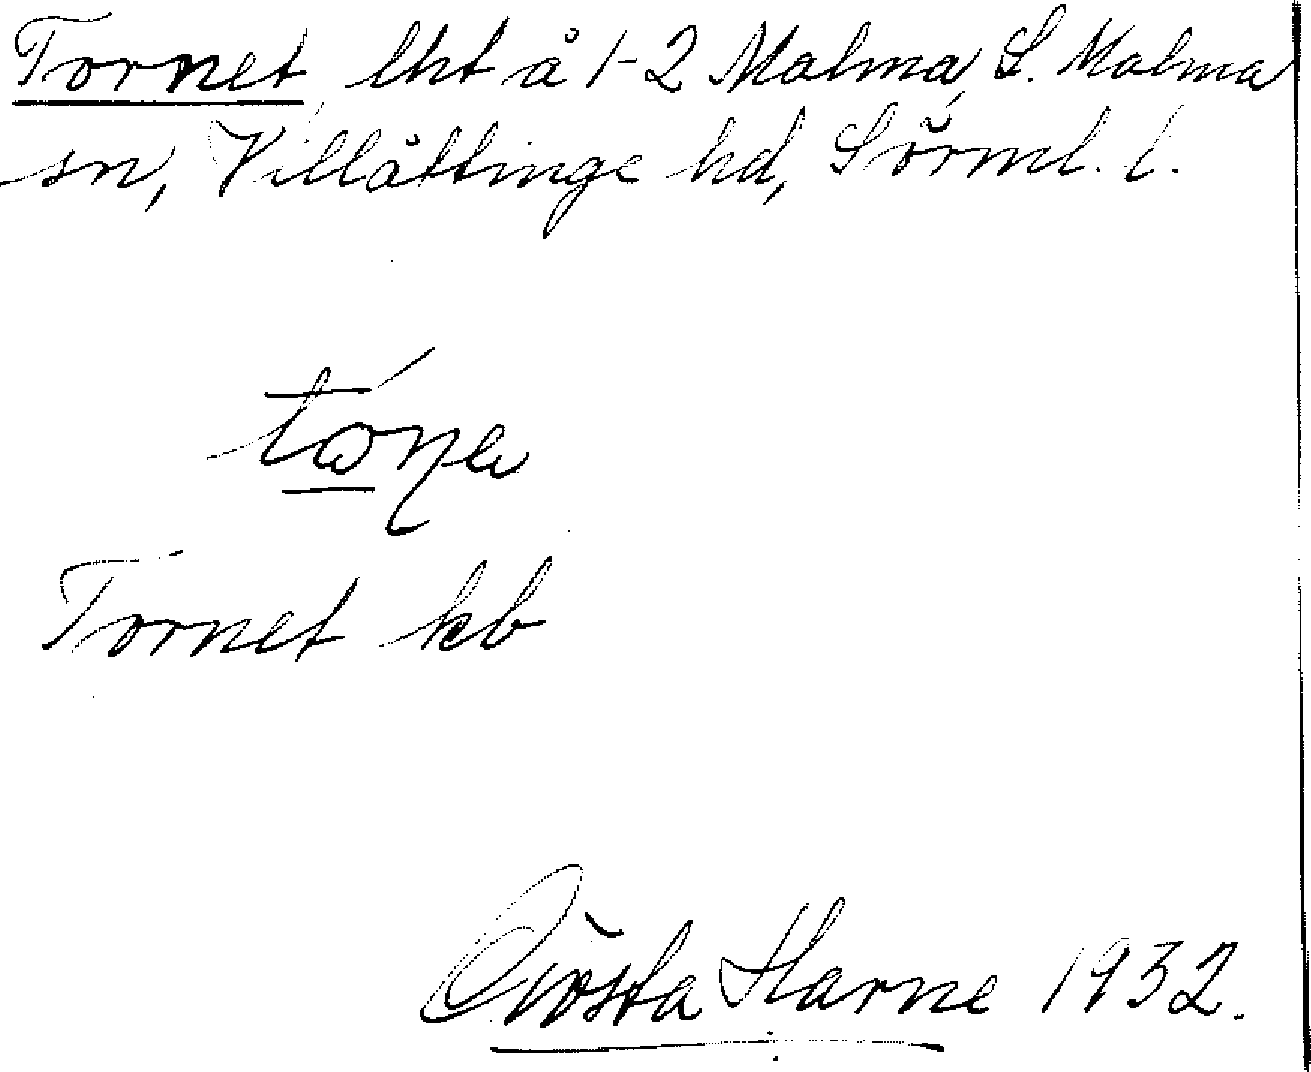 Tornet, lht å 1-2 Malma, L. Malma
sn, Villåttinge hd, Sörml. l.
Tornet kb
Gösta Harne 1932.